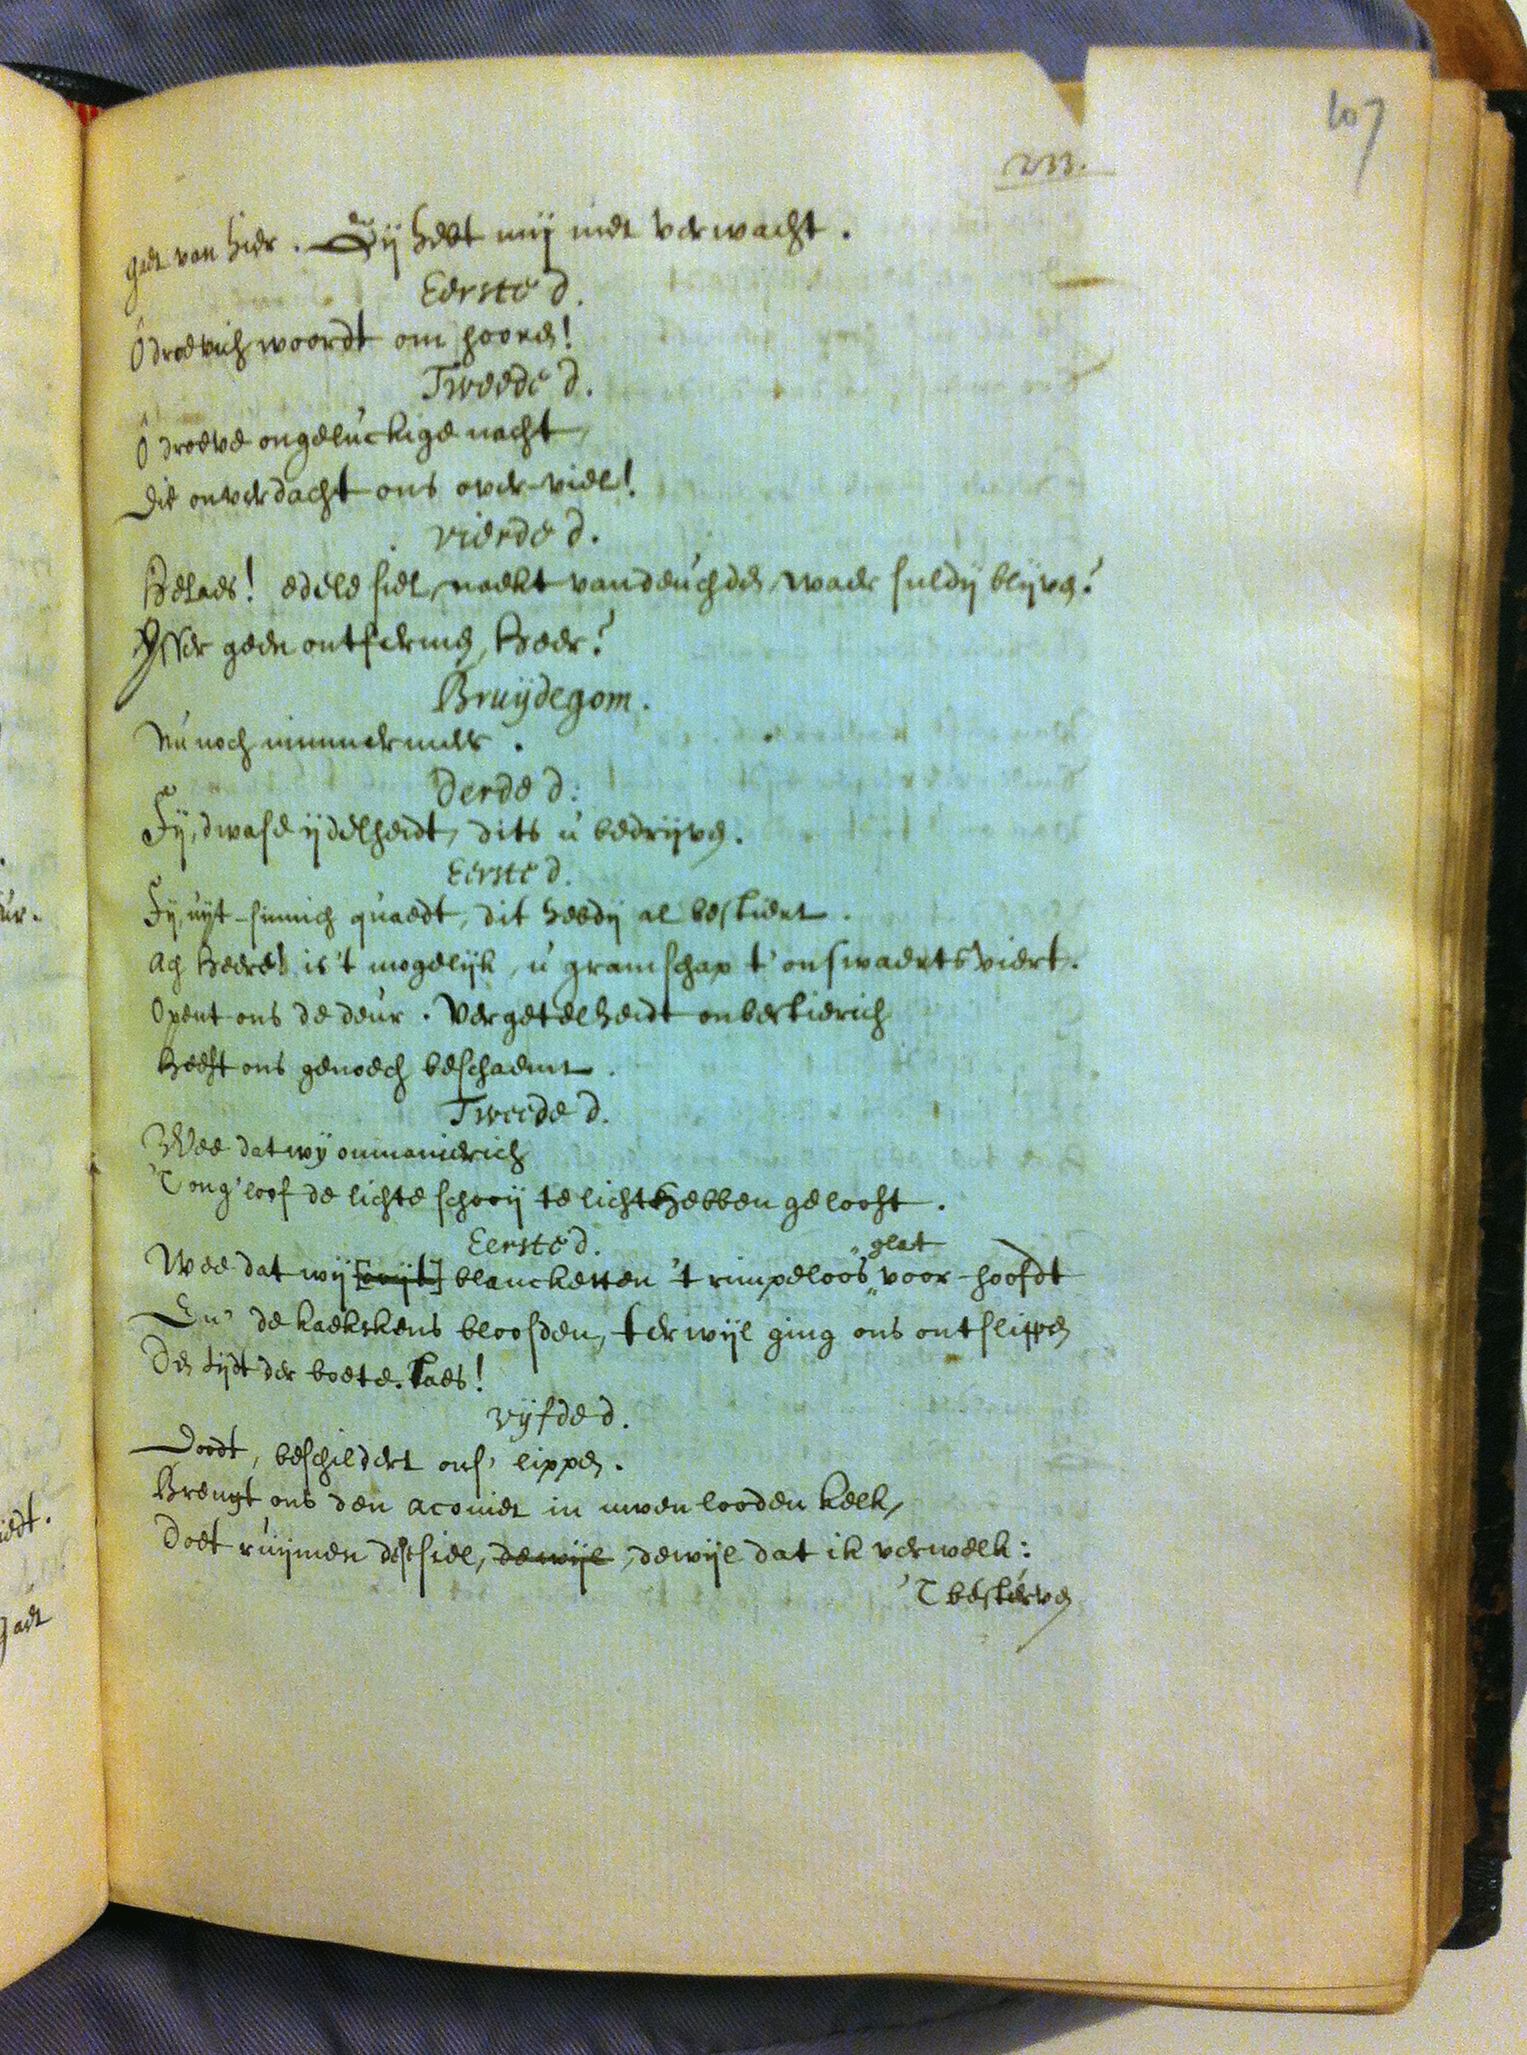 107
233.
gaet van hier. Gij hebt mij niet verwacht.
Eerste d.
Ô droevich woordt om hooren!
Tweede d.
Ô droeve ongeluckige nacht,
Die onverdacht ons over-viel!
vierde d.
Helaes! edele siel, naekt van deuchden, waer suldij blijven?
Isser geen ontferming, Heer?
Bruijdegom.
Nu noch nimmermeer.
Derde d:
Fij, dwase ijdelheidt, dits u bedrijven.
Eerste d.
Fij, uijt-sinnich quaedt, dit hebdij al bestiert.
Ach Heere! is 't mogelijk, u gramschap t' onswaerts viert.
Opent ons de deur. Vergetelheidt onbestierich
Heeft ons genoech beschaemt.
Tweede d.
Wee dat wij onmanierich
'T ong'loof de lichte schooij te licht Hebben gelooft.
Eerste d.
glat
Wee dat wij [ooijt] blancketten 't rimpeloos voor-hoofdt
En' de kaekskens bloosden, terwijl ging ons ontslippen
Den tijdt der boete. Laes!
vijfde d.
Doodt, beschildert ons' lippen.
Brengt ons den aconiet in uwen looden kelk,
Doet ruijmen dese siel, dewijl, dewijl dat ik verwelk:
'T besterven